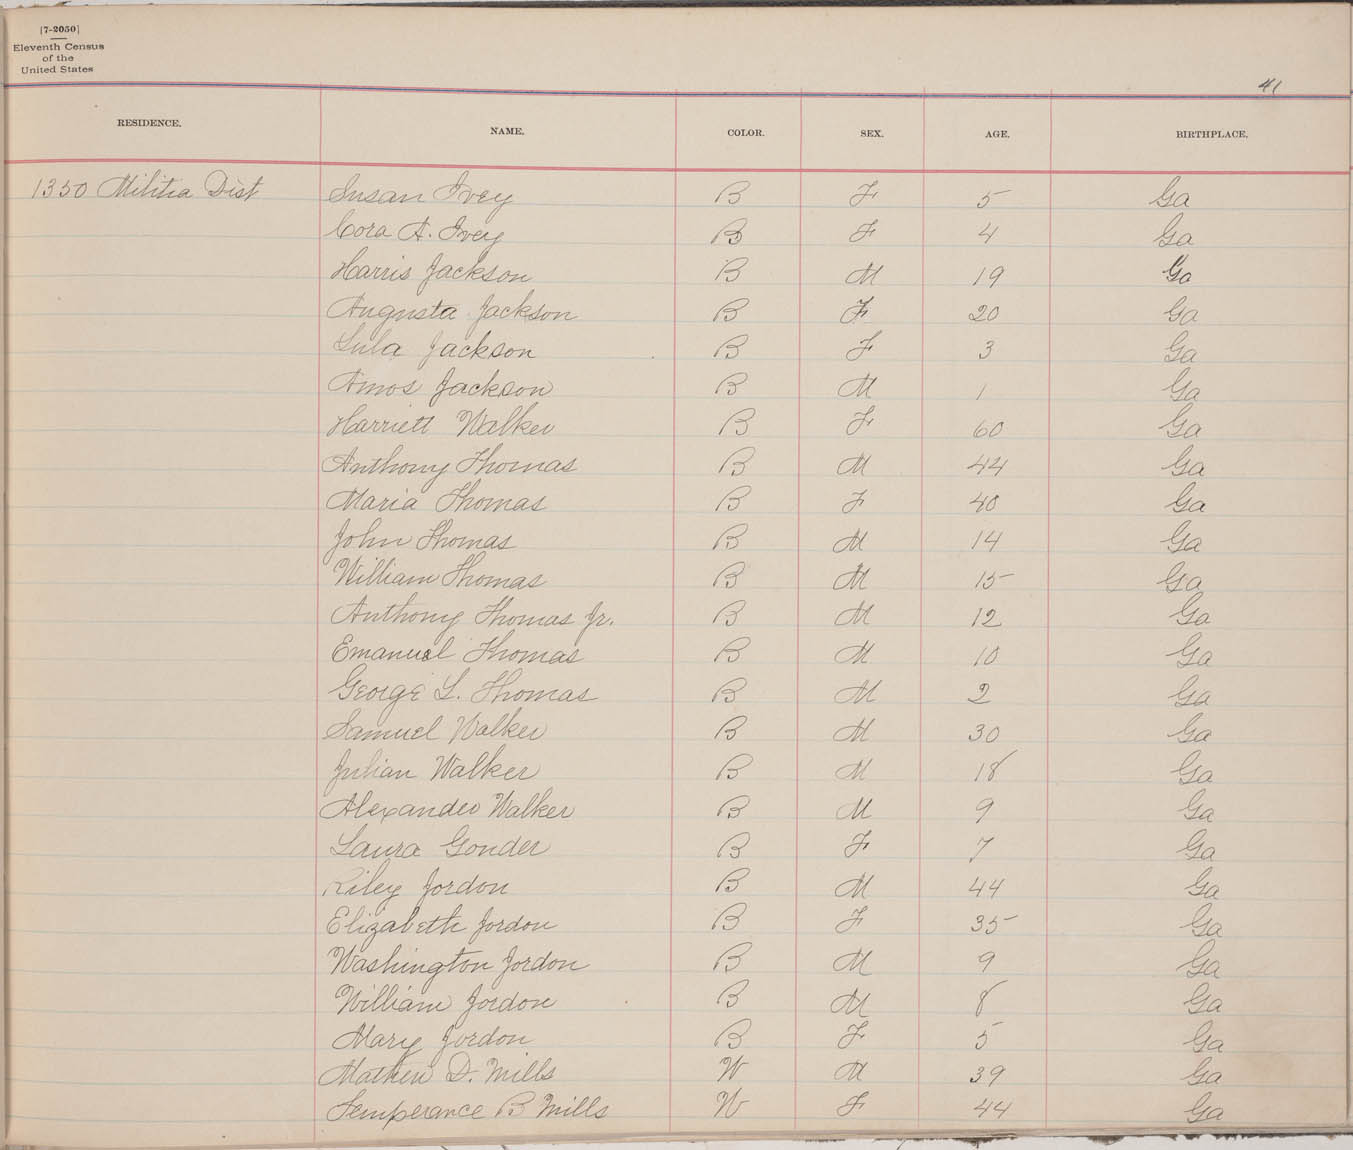 [7-2050]
Eleventh Census
of the
United States
41
RESIDENCE. NAME. COLOR. SEX. AGE. BIRTHPLACE.
1350 Militia Dist Susan Ivey B F 5 Ga
Cora A. Ivey B F 4 Ga
Harris Jackson B M 19 Ga
Augusta Jackson B F 20 Ga
Lula Jackson B F 3 Ga
Amos Jackson B M 1 Ga
Harriett Walker B F 60 Ga
Anthony Thomas B M 44 Ga
Maria Thomas B F 40 Ga
John Thomas B M 14 Ga
William Thomas B M 15 Ga
Anthony Thomas Jr. B M 12 Ga
Emanuel Thomas B M 10 Ga
George L. Thomas B M 2 Ga
Samuel Walker B M 30 Ga
Julian Walker B M 18 Ga
Alexander Walker B M 9 Ga
Laura Gonder B F 7 Ga
Riley Jordon B M 44 Ga
Elizabeth Jordon B F 35 Ga
Washington Jordon B M 9 Ga
William Jordon B M 8 Ga
Mary Jordon B F 5 Ga
Mathew D. Mills W M 39 Ga
Temperance B Mills W F 44 Ga